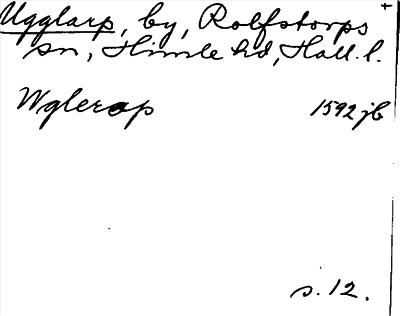 Ugglarp, by, Rolfstorps +
sn, Himle hd, Hall. l.
Wglerop 1592 jb
s. 12.